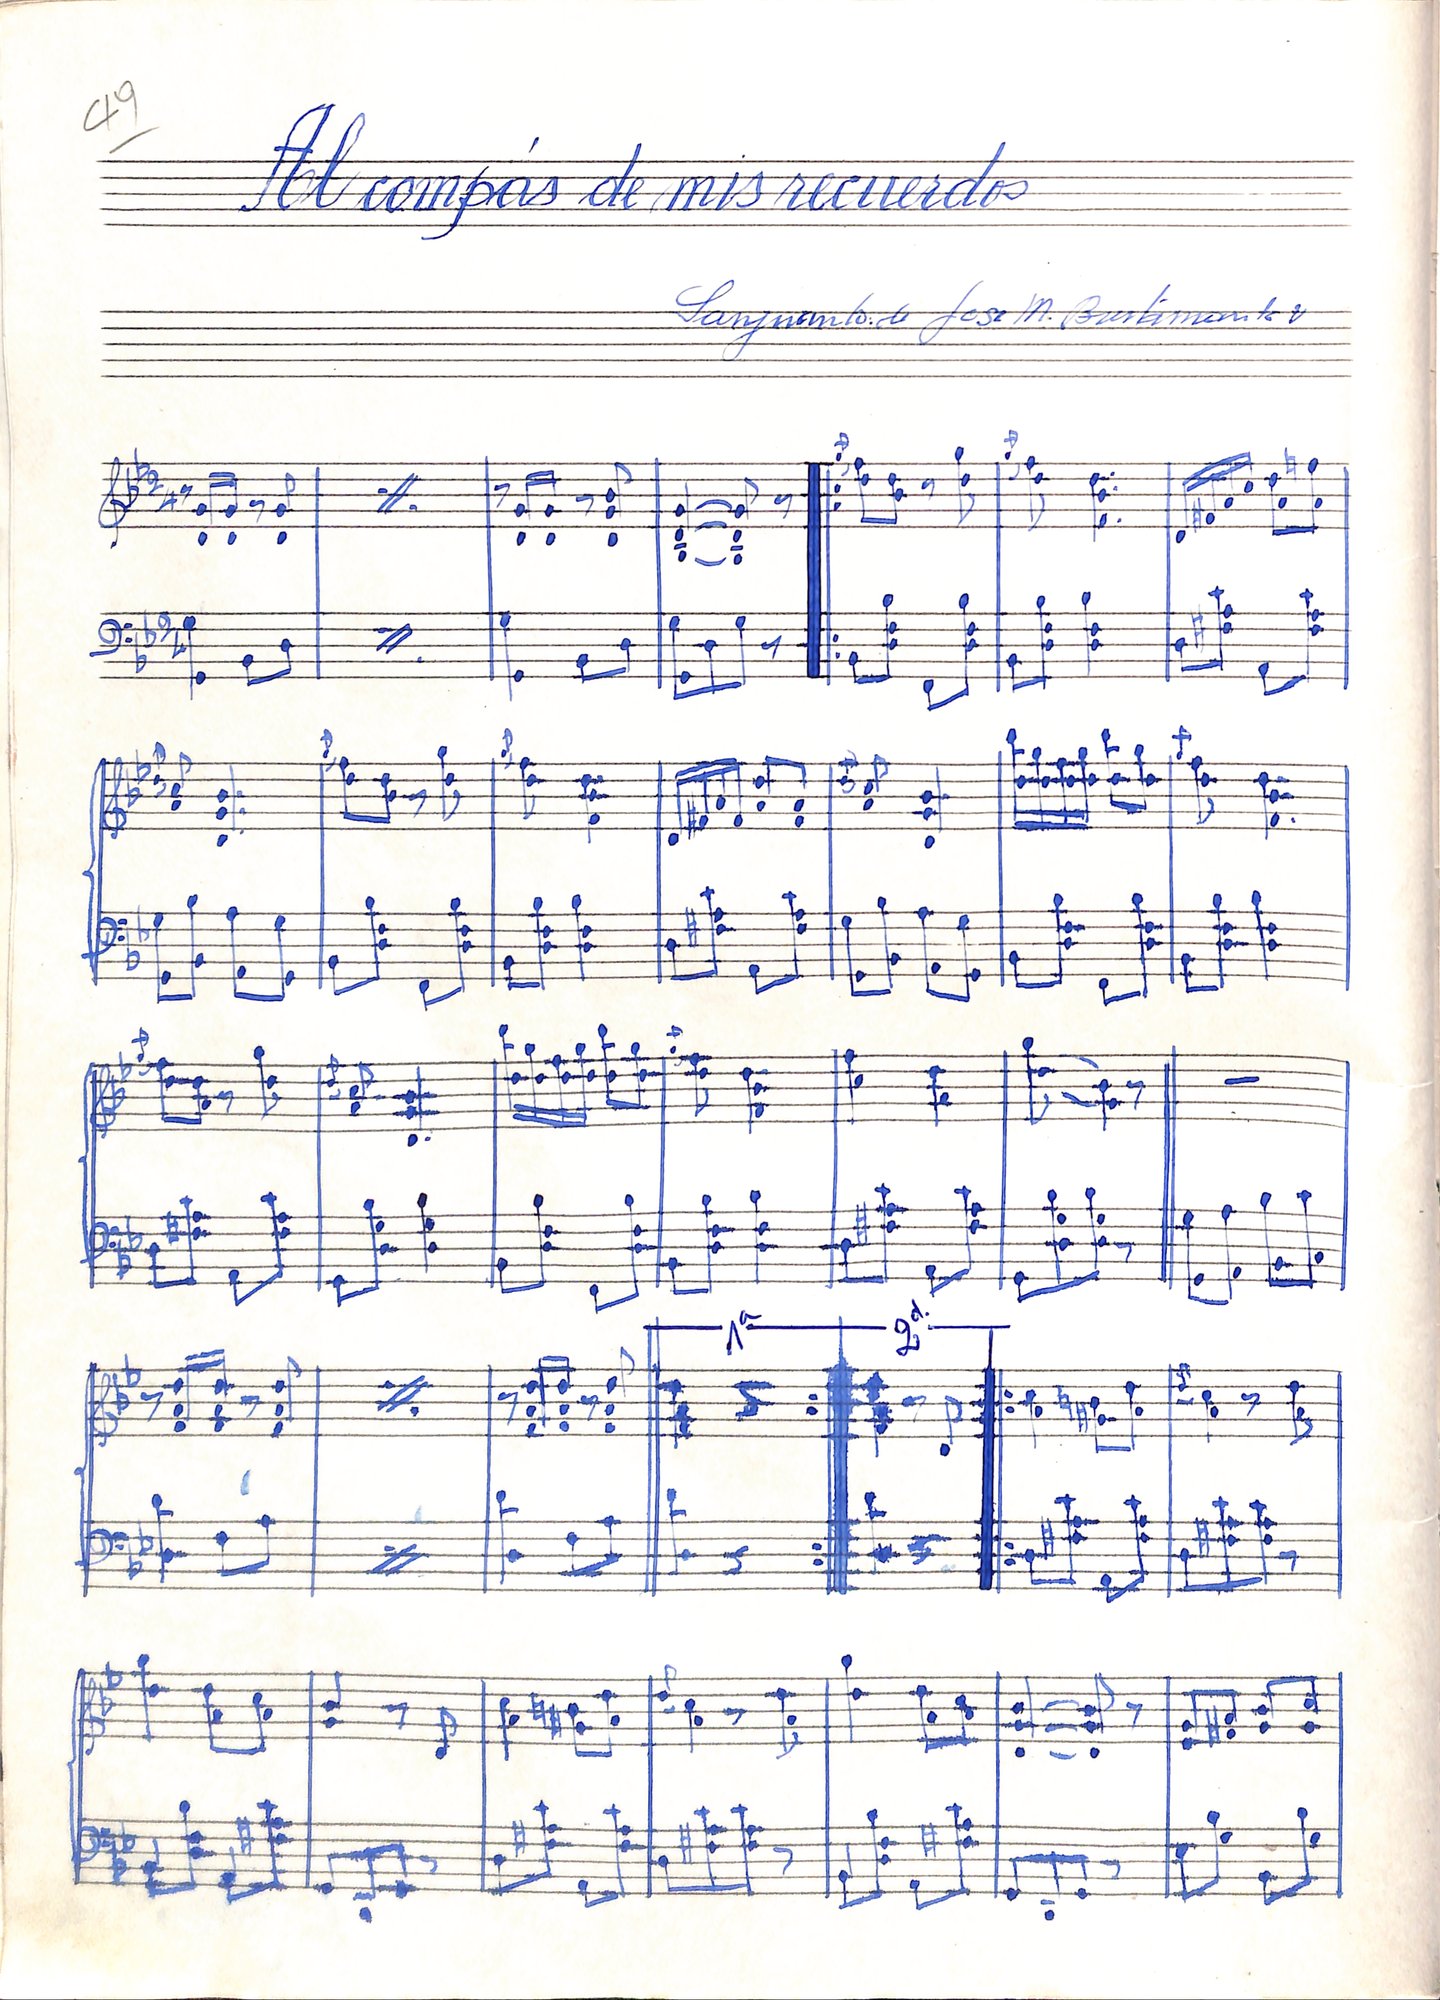 49
Al compás de mis recuerdos
Sanjuanito. de Jose M. Bustamante
1ª
2ª.